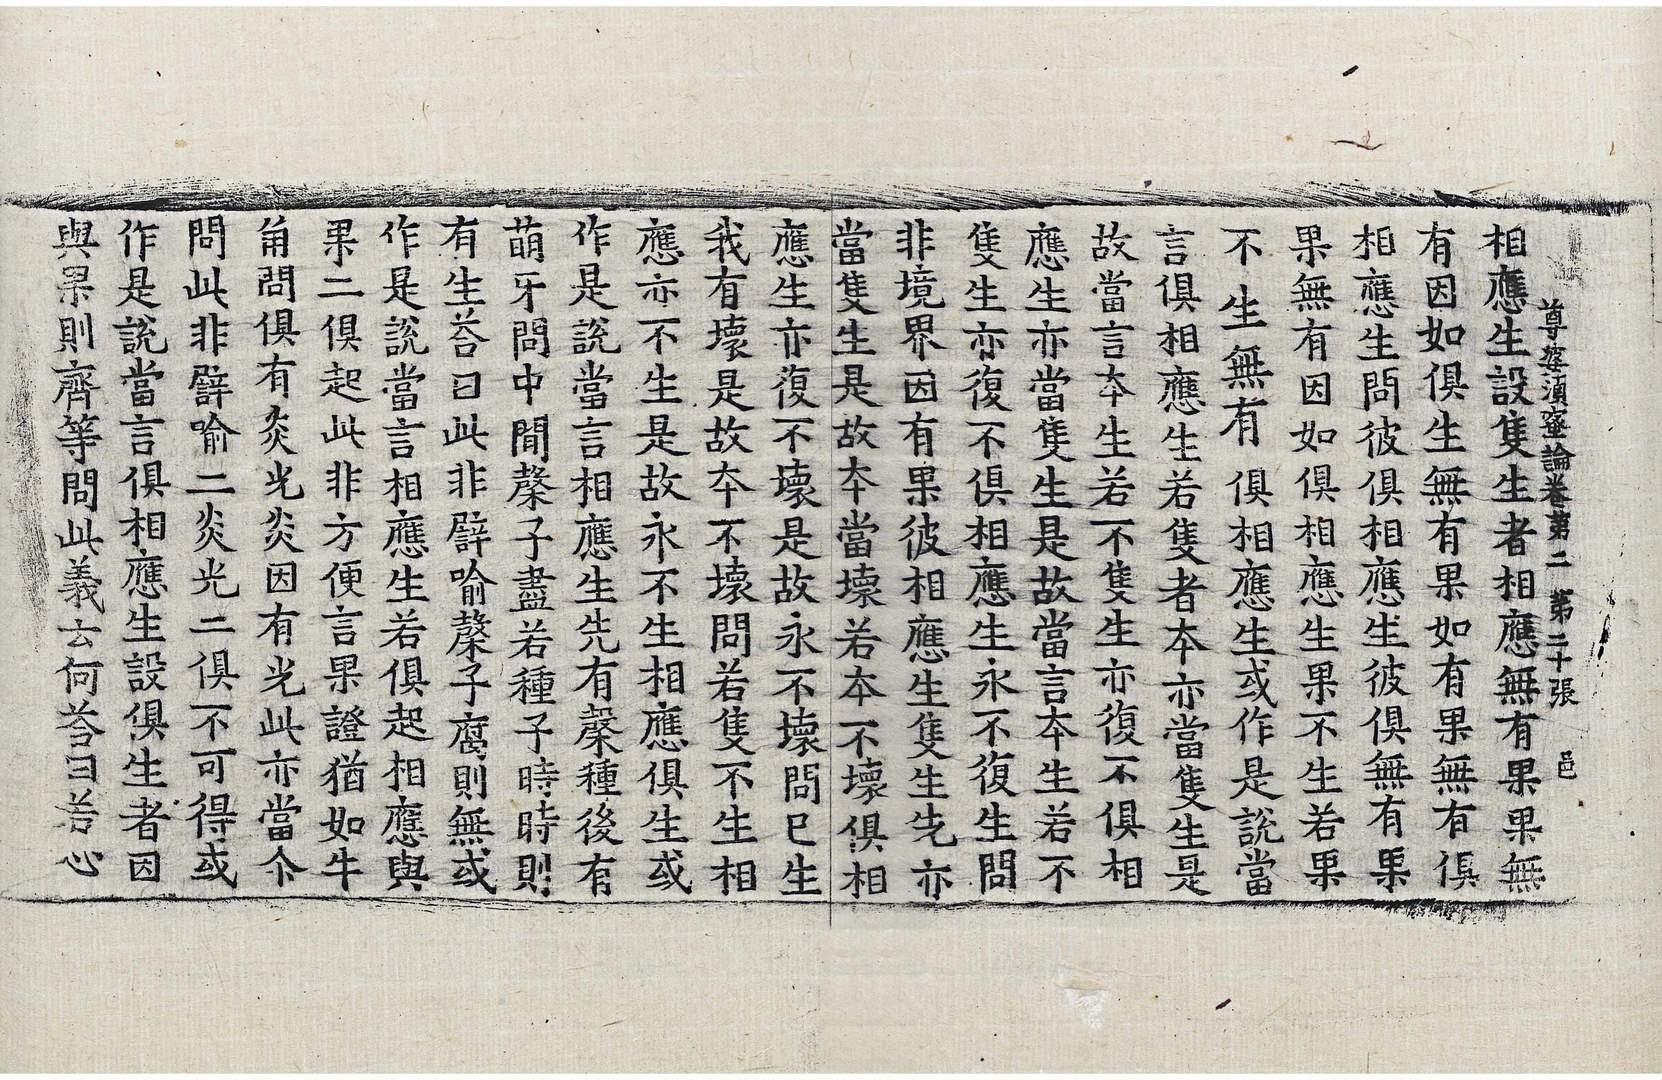 尊婆須蜜論卷第二　第二十張　邑
相應生設隻生者相應無有果果無
有因如俱生無有果如有果無有俱
相應生問彼俱相應生彼俱無有果
果無有因如俱相應生果不生若果
不生無有俱相應生或作是說當
言俱相應生若隻者本亦當隻生是
故當言本生若不隻生亦復不俱相
應生亦當隻生是故當言本生若不
隻生亦復不俱相應生永不復生問
非境界因有果彼相應生隻生先亦
當隻生是故本當壞若本不壞俱相
應生亦復不壞是故永不壞問已生
我有壞是故本不壞問若隻不生相
應亦不生是故永不生相應俱生或
作是說當言相應生先有䅽種後有
萌牙問中間䅽子盡若種子時時則
有生荅曰此非譬喻䅽子腐則無或
作是說當言相應生若俱起相應與
果二俱起此非方便言果證猶如牛
角問俱有炎光炎因有光此亦當尒
問此非譬喻二炎光二俱不可得或
作是說當言俱相應生設俱生者因
與果則齊等問此義云何荅曰若心